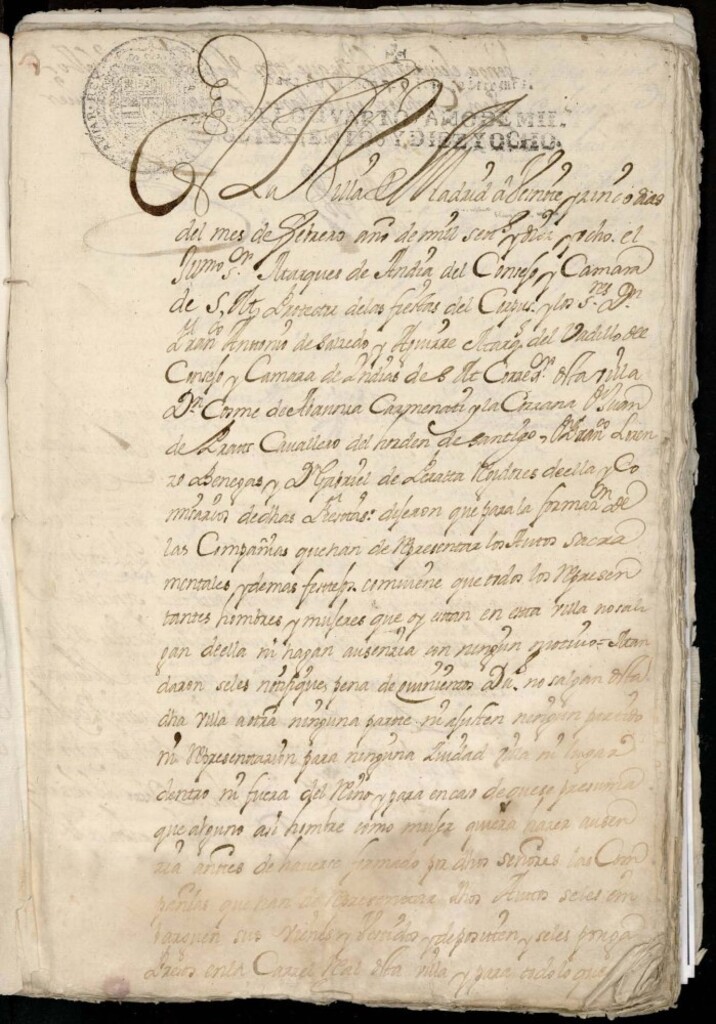 SELLO QVARTO, AÑO DE MIL
SETECIENTOS Y DIEZ Y OCHO.
En la Villa de Madrid a Veinte y cinco dias
del mes de febrero año de mil setts. y diez y ocho. el
Illmo. Sr. Marques de Andia del Consejo y Camara
de S. Mt. Protector de las fiestas del Corpus y los Sres. Dn.
Franco. Antonio de Salcedo y Aguirre Marqs. del Vadillo del
Consejo y Camara de Indias de S. Mt. Corregr. desta villa
Dn. Cosme de y la Dn. Juan
de Prado Cavallero del horden de Santigo. Dn. Franco. Loren
zo Benegas y Dn. Gabriel de Peralta Rejidores de ella y Co
misarios de dhas fiestas: dijeron que para la formazn. de
las Compañias que han de Representar los Autos Sacra
mentales y demas festejos combiene que todos los Represen
tantes hombres y mujeres que oy estan en esta villa no sal
gan de ella ni hagan ausenzia con ningun motivo = Man
daron se les notifique, pena de quinientos Dus. no salgan desta
dha villa a otra ninguna parte ni ajusten ningun partido
ni Representazion para ninguna Ziudad villa ni lugar
dentro ni fuera del Reino y para en caso de que se presuma
que alguno asi hombre como mujer quiera hazer ausen
zia antes de haverse formado por dhos señores las Com
pañias que han de Representar dhos Autos se les em
barguen sus vienes y Vestidos y depositen y se les ponga
Presos en la Carzel Real desta villa y para todo lo que